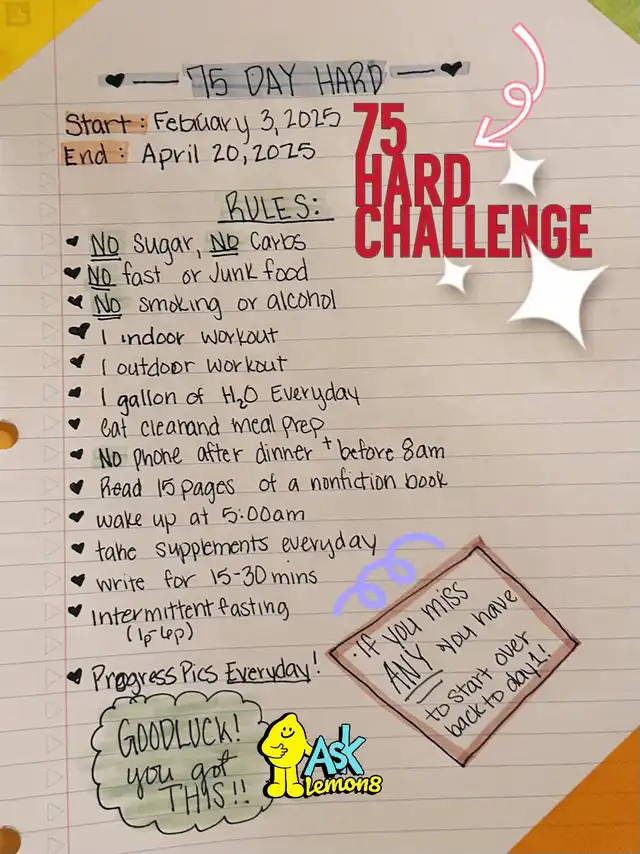 75 DAY HARD
Start: February 3, 2025
End: April 20, 2025
75
HARD
CHALLENGE
RULES:
NO Sugar, NO Carbs
NO fast or Junk food
NO smoking or alcohol
1 indoor workout
1 outdoor workout
1 gallon of H₂O Everyday
eat cleanand meal prep
NO phone after dinner + before 8am
Read 15 pages of a nonfiction book
wake up at 5:00am
take supplements everyday
write for 15-30 mins
Intermittent fasting
Progress Pics Everyday!
If you miss
ANY you have
to start over
back to day 1!
GOODLUCK!
you got
THIS!!
Ask
Lemon8